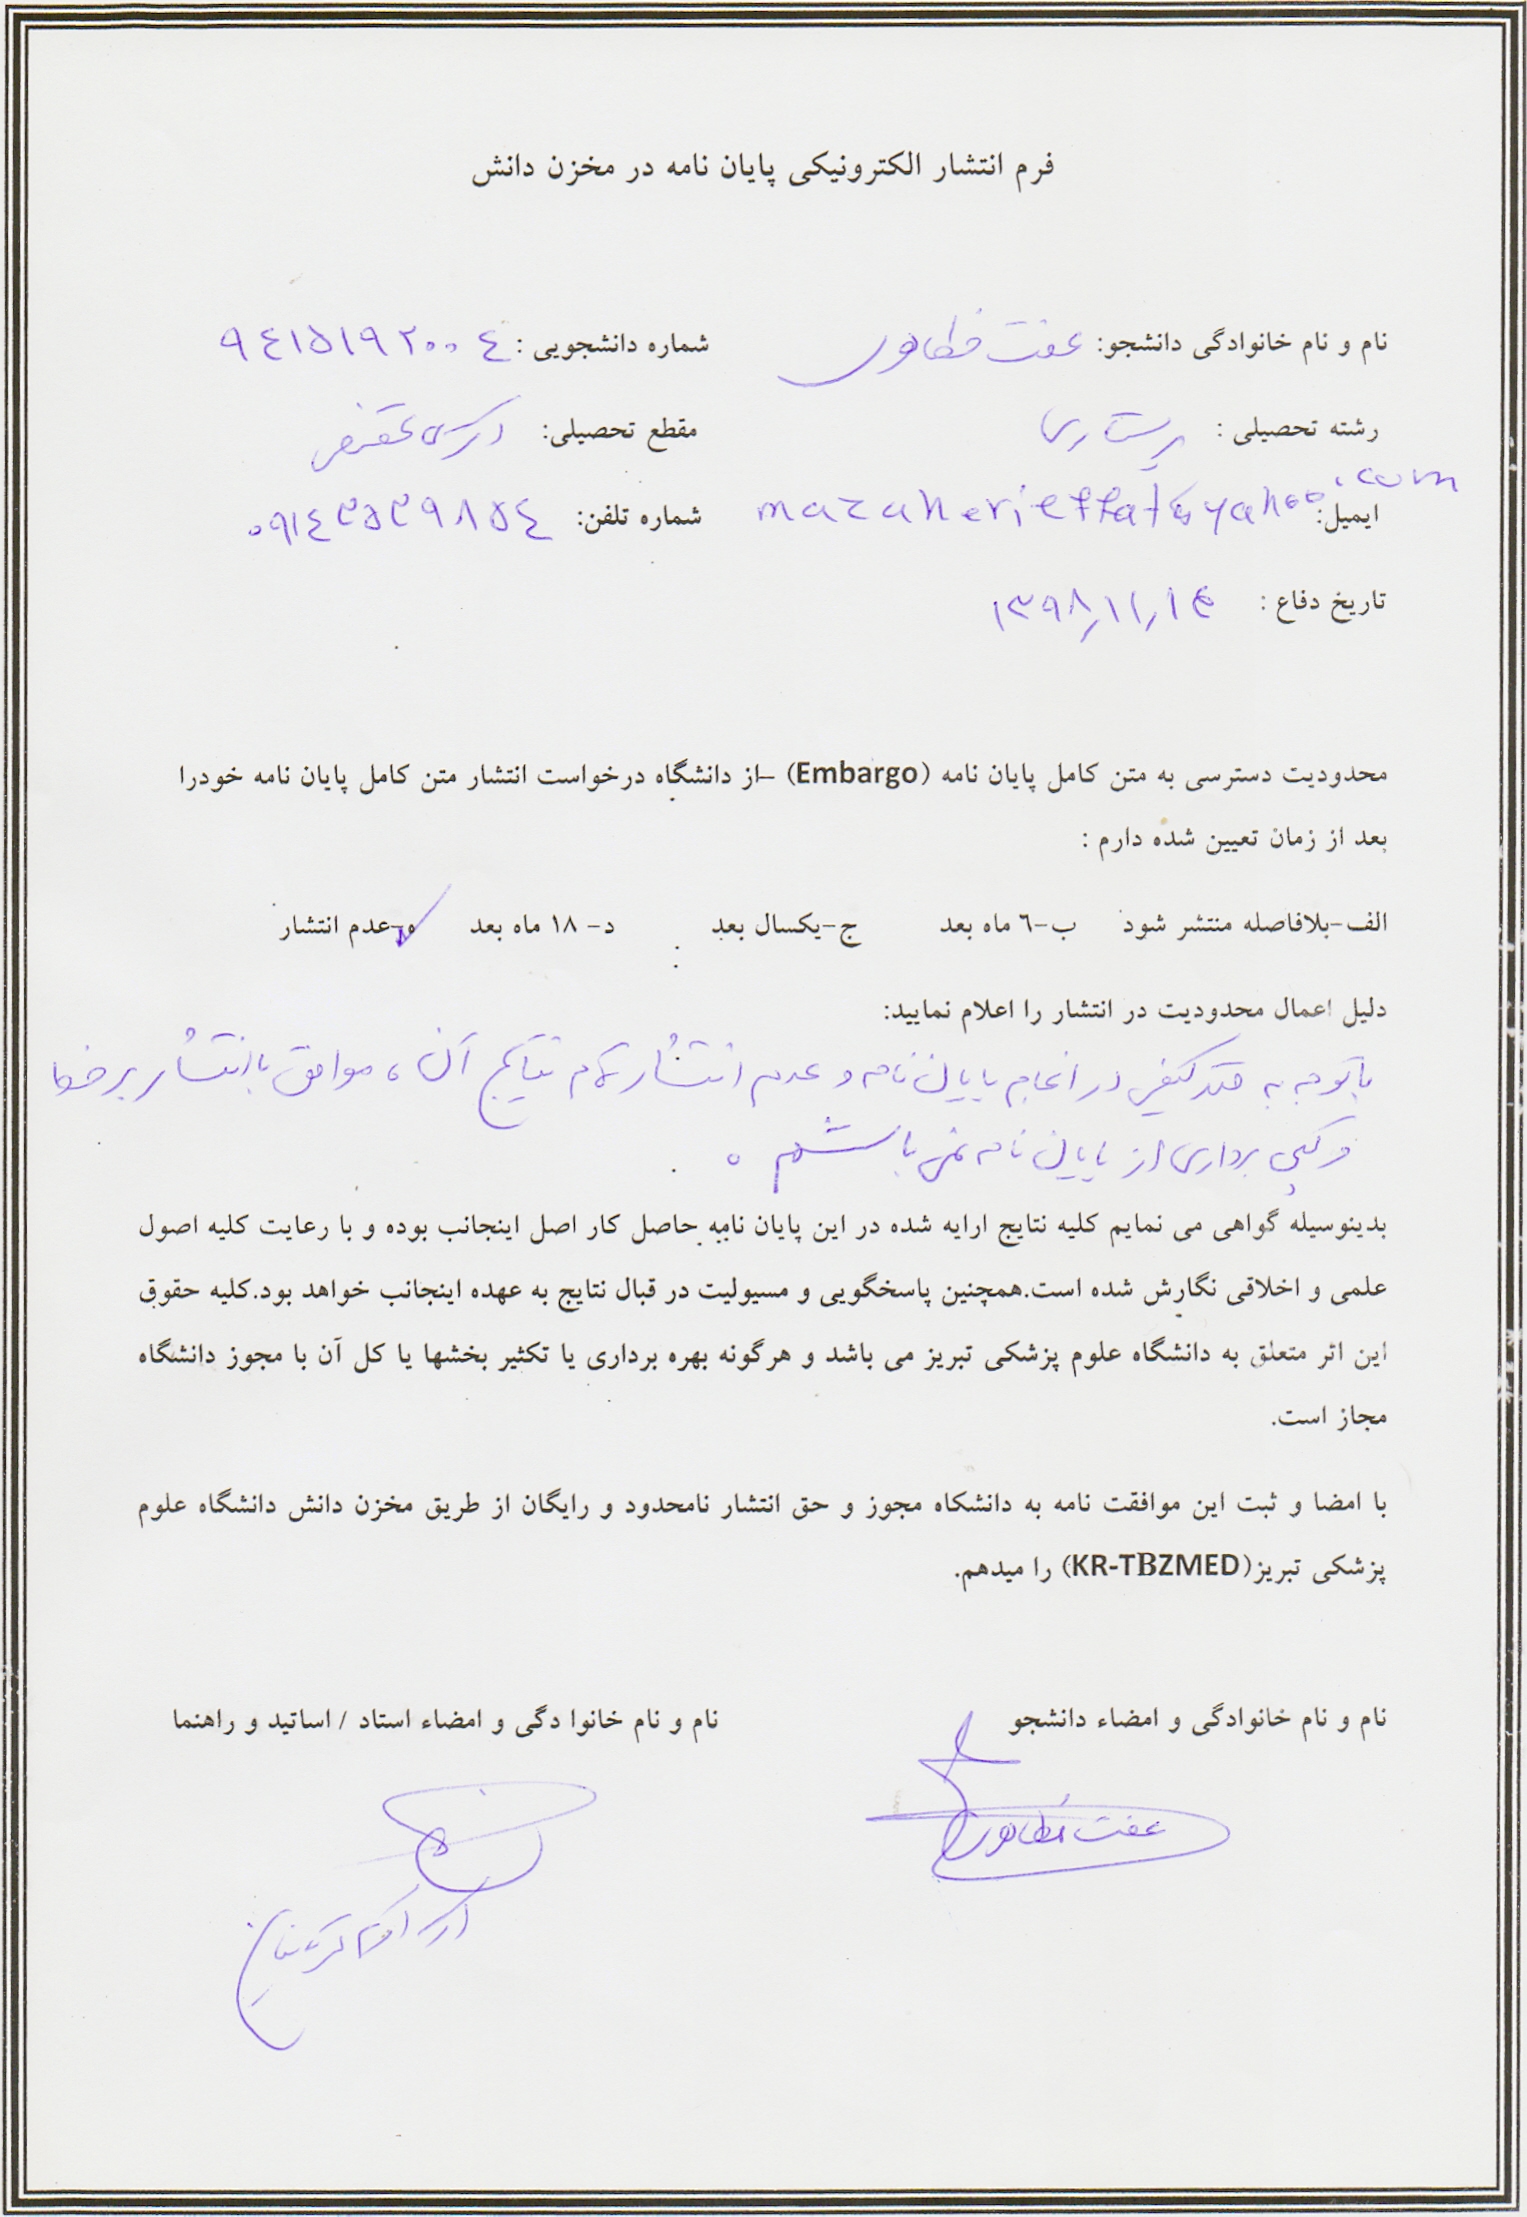 فرم انتشار الکترونیکی پایان نامه در مخزن دانش
نام و نام خانوادگی دانشجو: عفت مظاهری شماره دانشجویی : ۹٤۱۵۱۹۲۰۰٤
رشته تحصیلی : پرستاری مقطع تحصیلی:
ایمیل: mazaherieffat@yahoo.com شماره تلفن: ۰۹۱٤۳۵۳۹۸۵٤
تاریخ دفاع : ۱۳۹۸/۱۱/
محدودیت دسترسی به متن کامل پایان نامه (Embargo) –از دانشگاه درخواست انتشار متن کامل پایان نامه خودرا
بعد از زمان تعیین شده دارم :
الف-بلافاصله منتشر شود ب-٦ ماه بعد ج-یکسال بعد د- ۱۸ ماه بعد ه-عدم انتشار
دلیل اعمال محدودیت در انتشار را اعلام نمایید:
باتوجه به متد کیفی در انجام پایان نامه و عدم انتشار تمام نتایج آن ، موافق با انتشار برخط
و کپی برداری از پایان نامه نمی باشم .
بدینوسیله گواهی می نمایم کلیه نتایج ارایه شده در این پایان نامه حاصل کار اصل اینجانب بوده و با رعایت کلیه اصول
علمی و اخلاقی نگارش شده است.همچنین پاسخگویی و مسیولیت در قبال نتایج به عهده اینجانب خواهد بود.کلیه حقوق
این اثر متعلق به دانشگاه علوم پزشکی تبریز می باشد و هرگونه بهره برداری یا تکثیر بخشها یا کل آن با مجوز دانشگاه
مجاز است.
با امضا و ثبت این موافقت نامه به دانشکاه مجوز و حق انتشار نامحدود و رایگان از طریق مخزن دانش دانشگاه علوم
پزشکی تبریز(KR-TBZMED) را میدهم.
نام و نام خانوادگی و امضاء دانشجو نام و نام خانوا دگی و امضاء استاد / اساتید و راهنما
عفت مظاهری